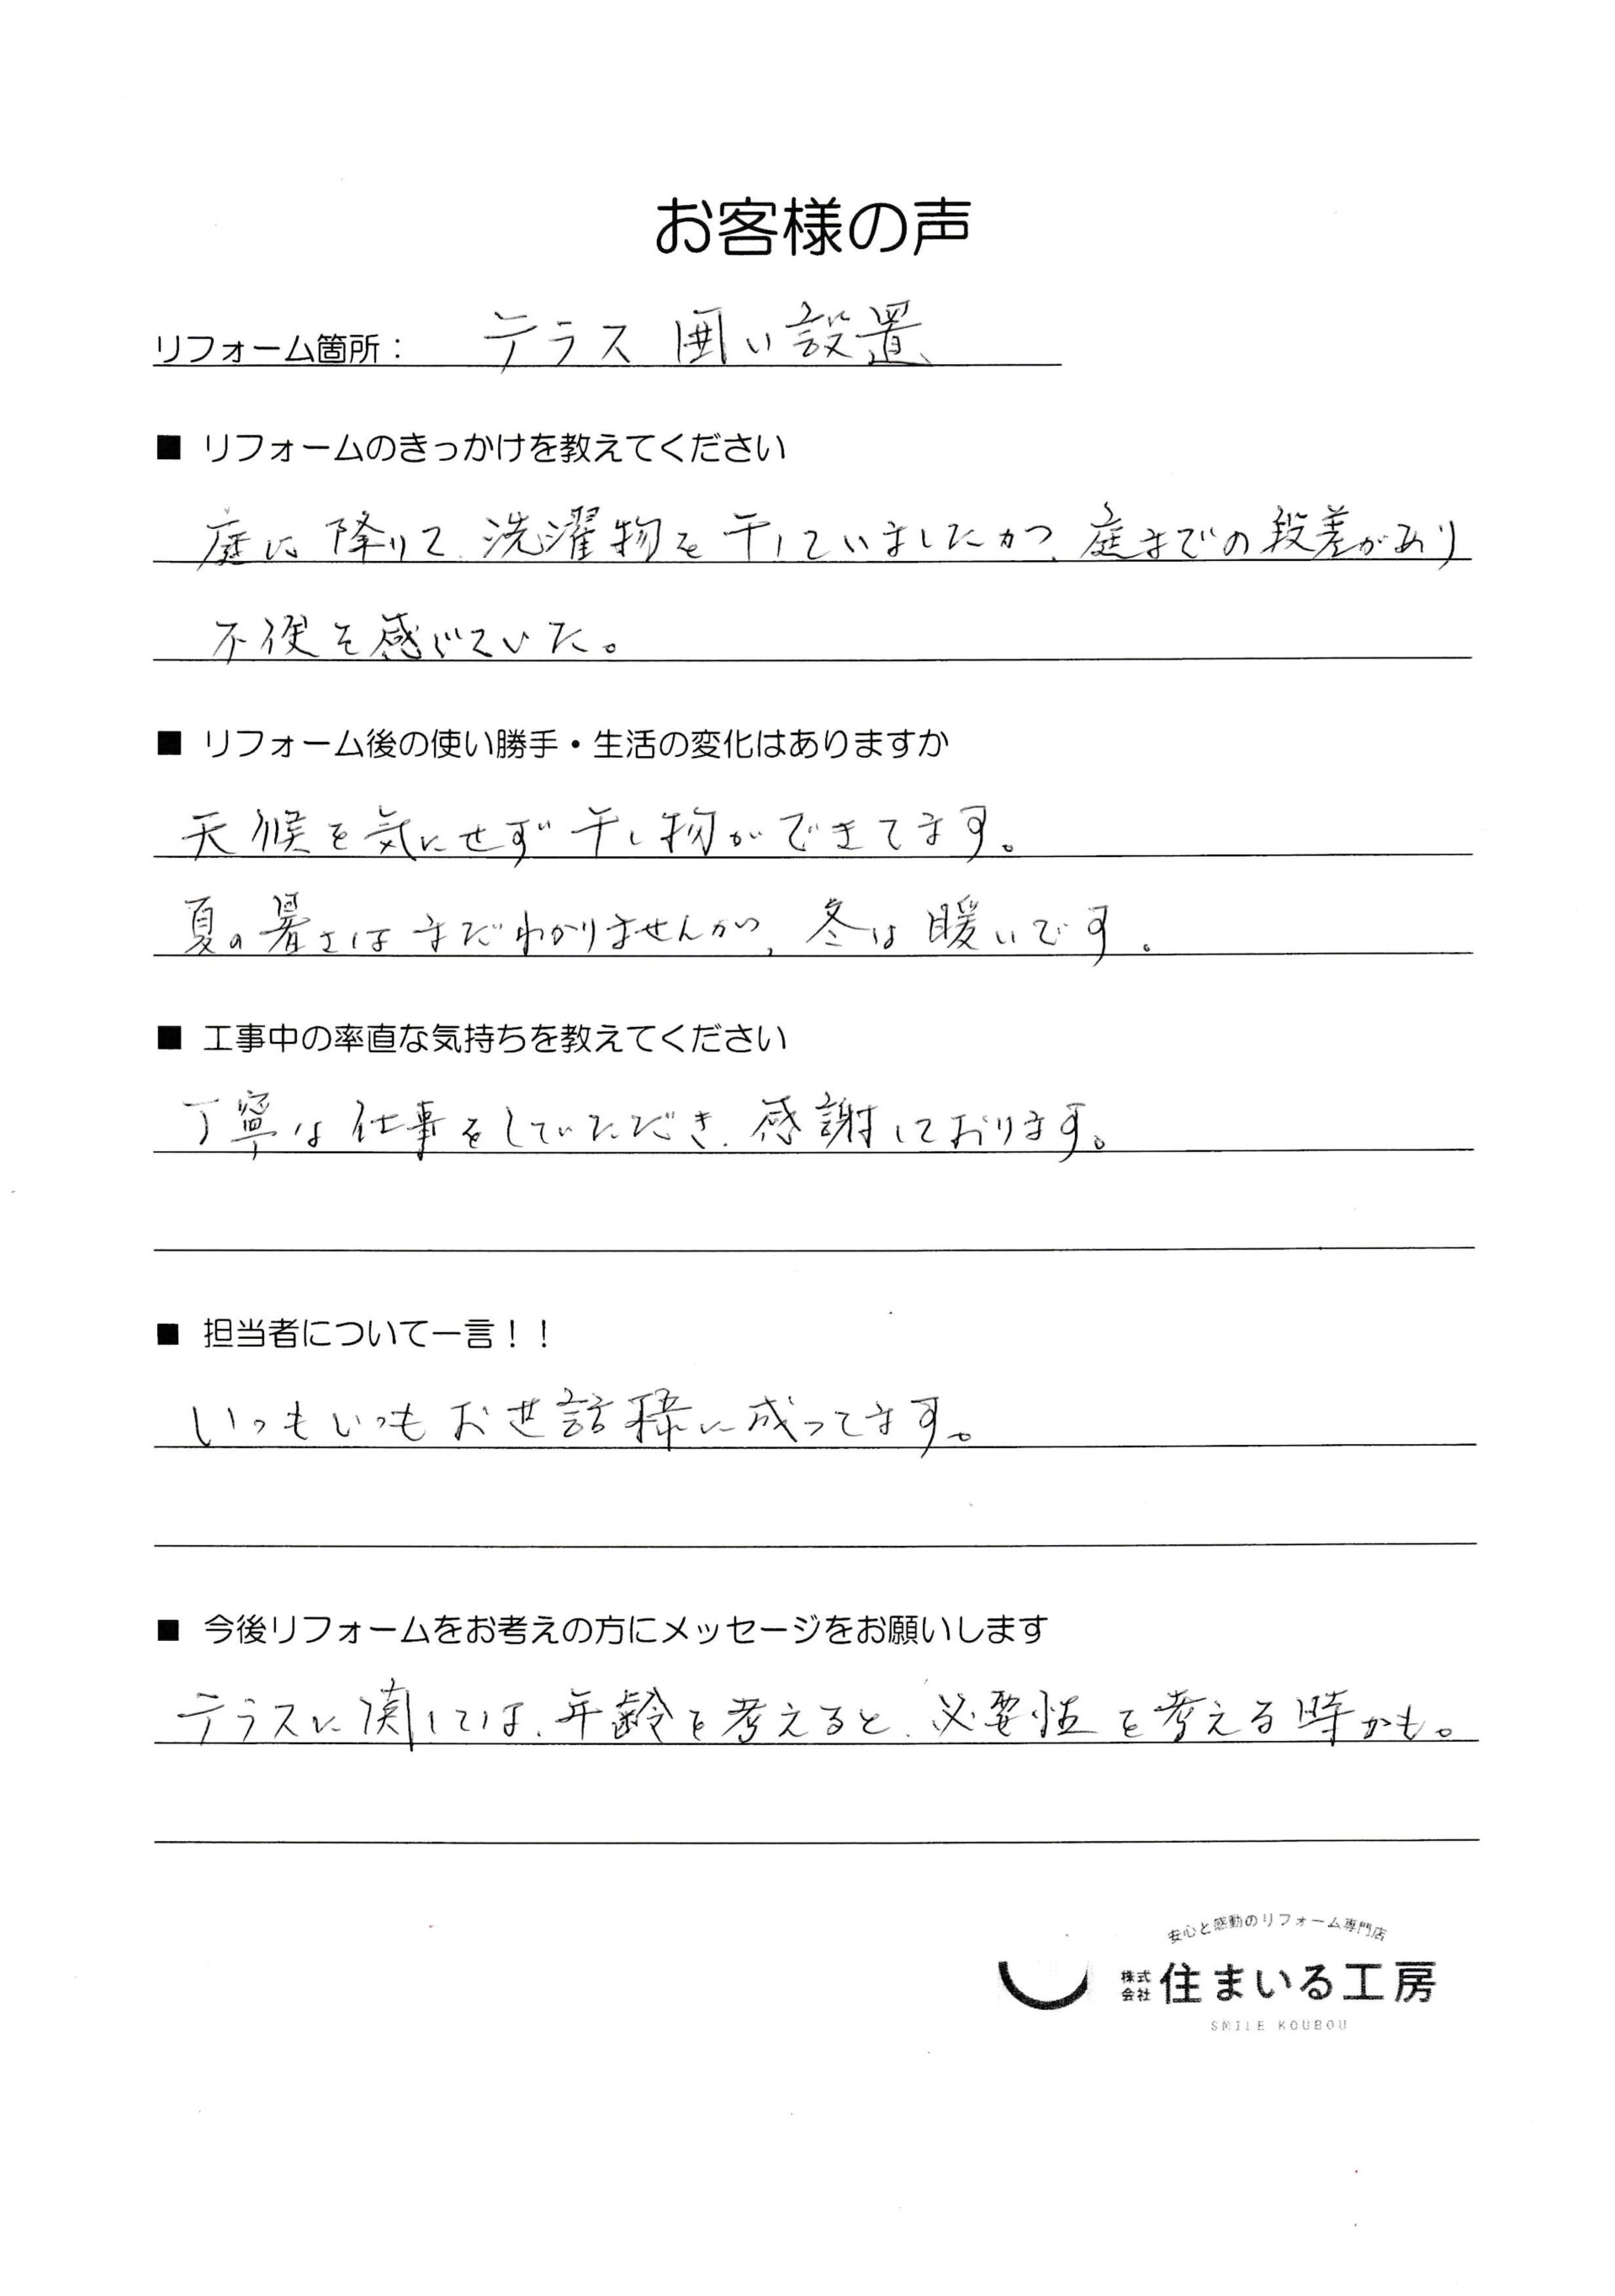 お客様の声
リフォーム箇所： テラス囲い設置
■ リフォームのきっかけを教えてください
庭に降りて、洗濯物を干していましたが、庭までの段差があり
不便を感じていた。
■ リフォーム後の使い勝手・生活の変化はありますか
天候を気にせず干し物ができてます。
夏の暑さはまだわかりませんが、冬は暖いです。
■ 工事中の率直な気持ちを教えてください
丁寧な仕事をしていただき、感謝しております。
■ 担当者について一言！！
いつもいつもお世話様に成ってます。
■ 今後リフォームをお考えの方にメッセージをお願いします
テラスに関しては、年齢を考えると、必要性を考える時かも。
安心と感動のリフォーム専門店
株式会社 住まいる工房
SMILE KOUBOU